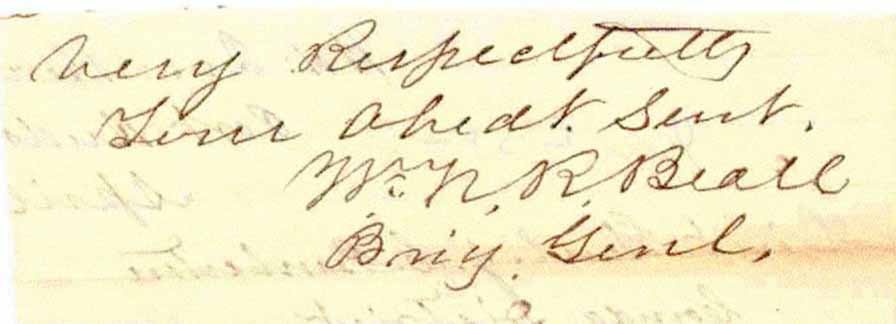 Very Respectfully
Your Obedt. Servt.
Wm. N. R. Beall
Brig. Genl.